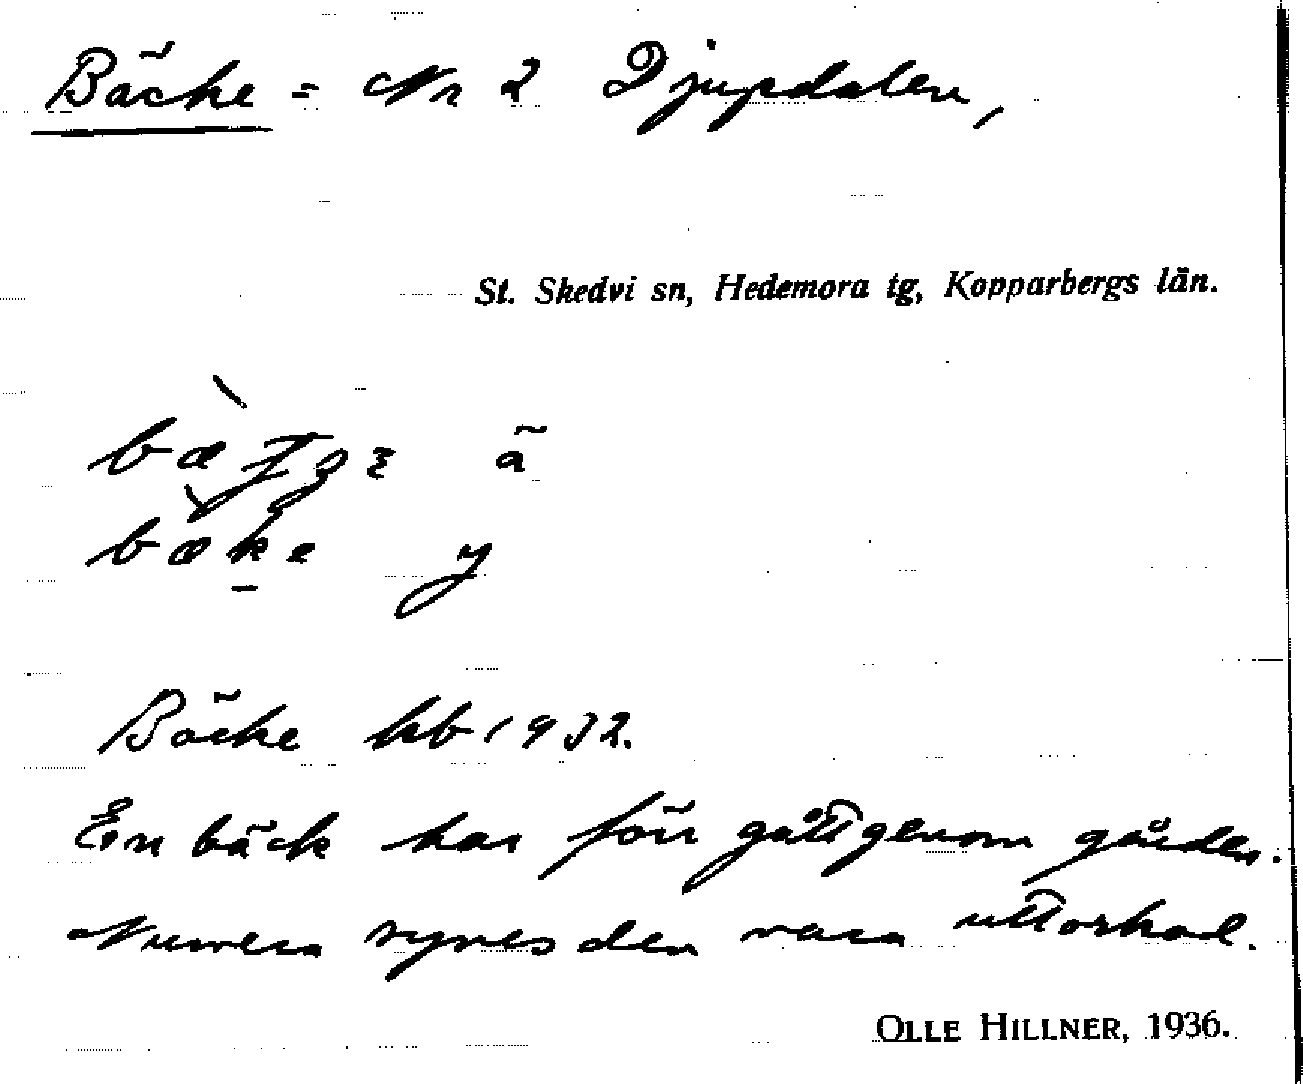 Bäcke = Nr 2 Djupdalen,
St. Skedvi sn, Hedemora tg, Kopparbergs län.
ä
bæke y
Bäcke kb 1932.
En bäck har förr gått genom gården.
Numera synes den vara uttorkad.
OLLE HILLNER, 1936.